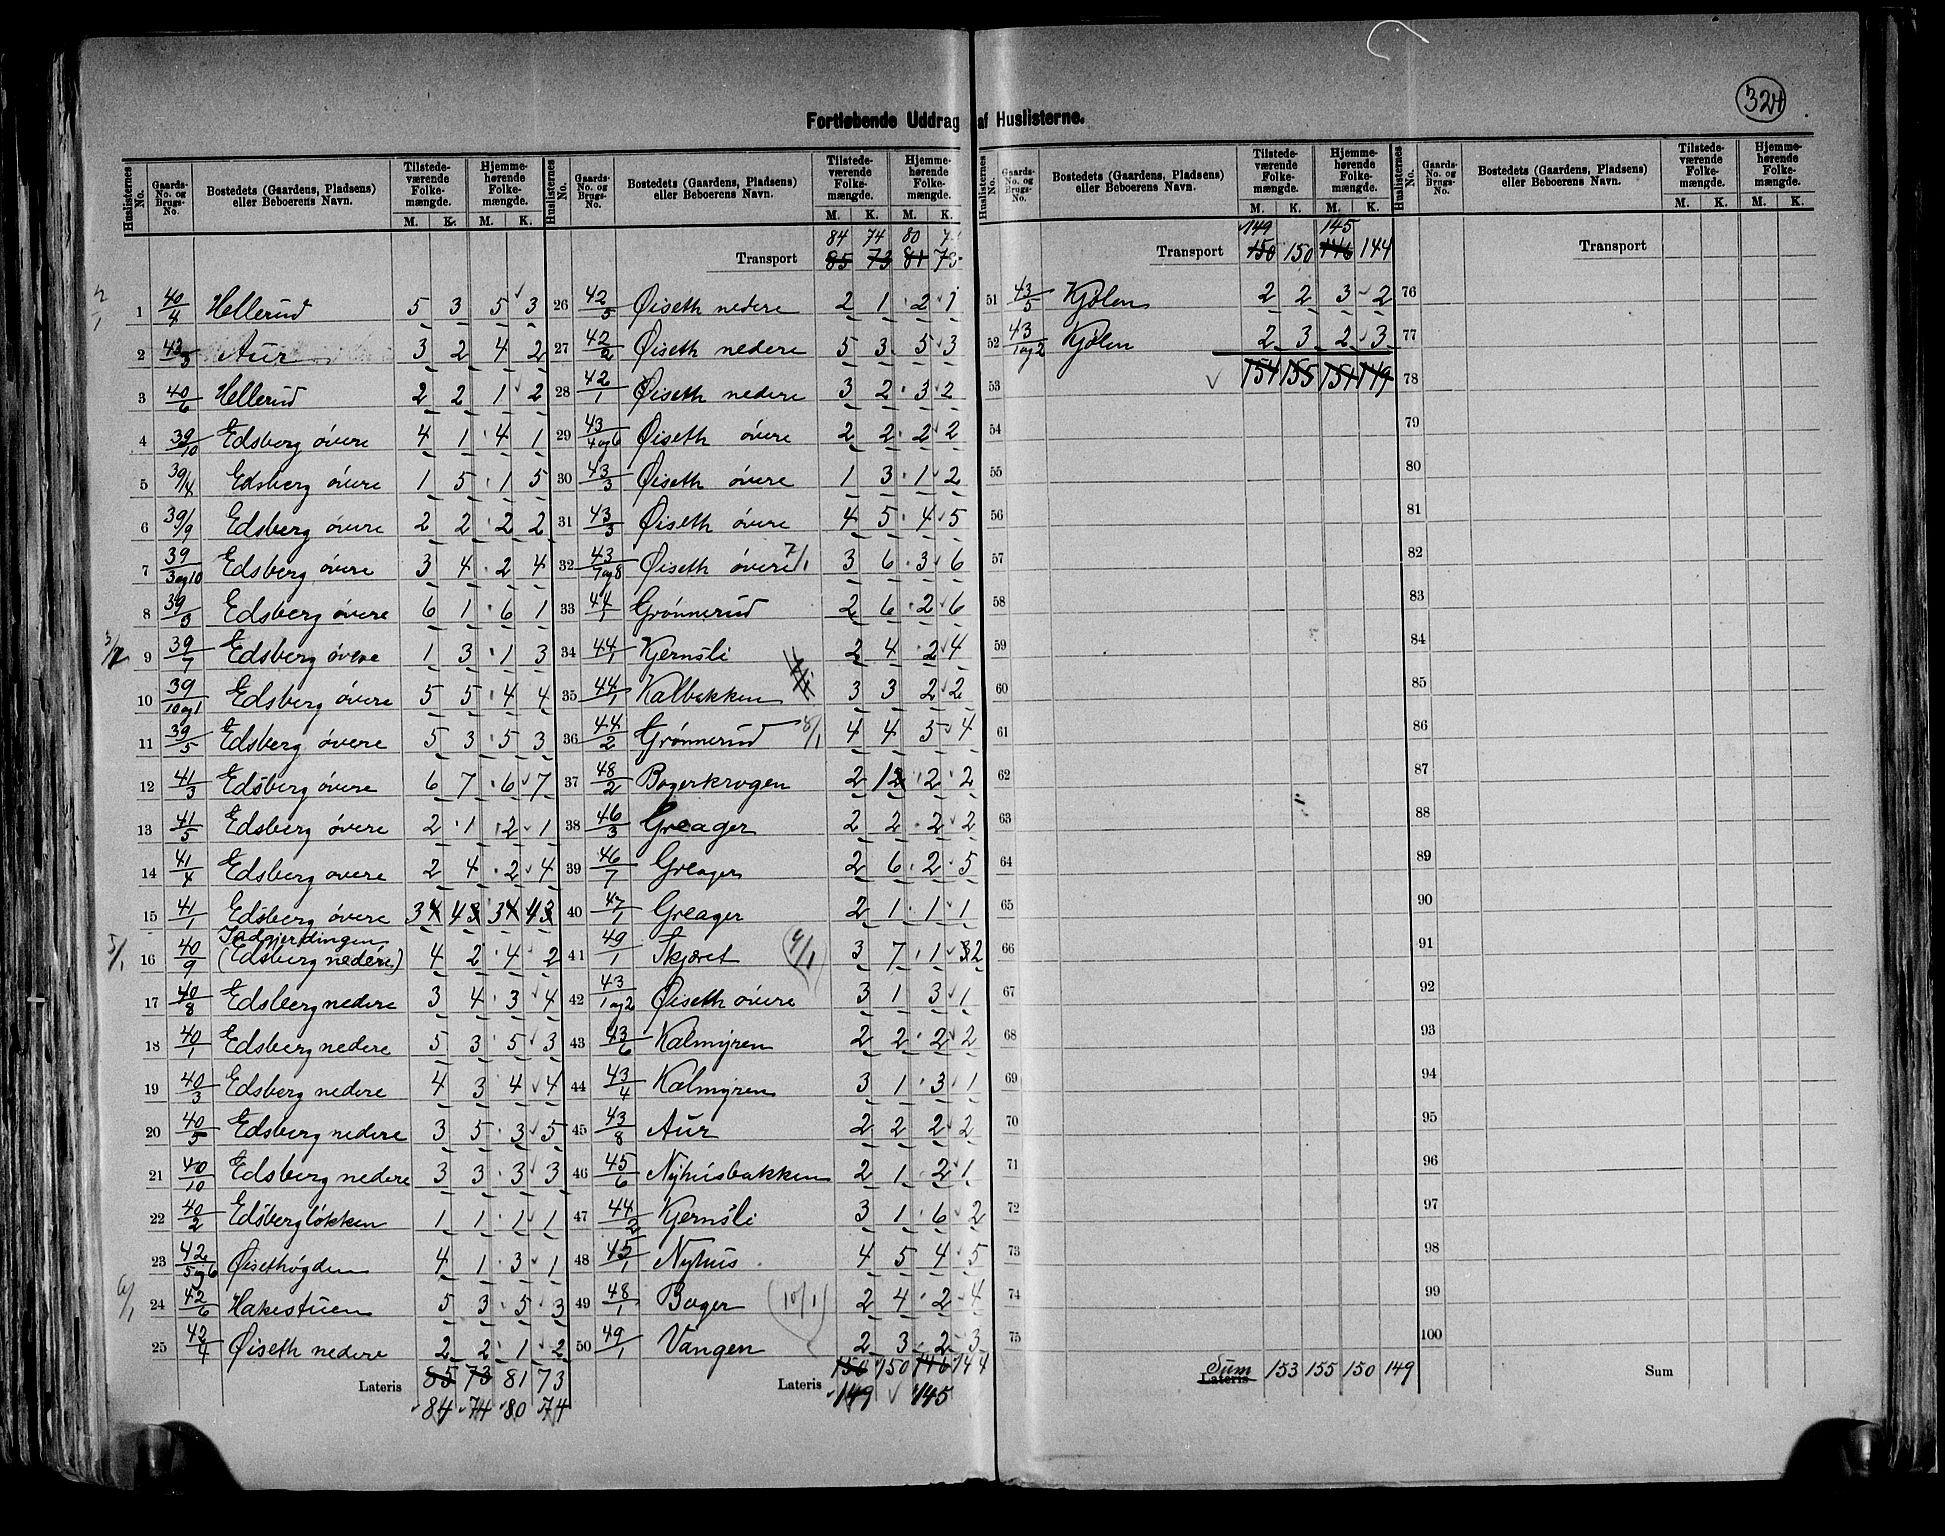 324
Fortløbende Uddrag af Huslisterne.
Huslisternes No. | Gaards-No. og Brugs-No. | Bostedets (Gaardens, Pladsens) eller Beboerens Navn. | Tilstedeværende Folkemængde. M. K. | Hjemmehørende Folkemængde. M. K.
1 40/4 Hellerud 5 3 5 3
2 43/3 Aur 3 2 4 2
3 40/6 Hellerud 2 2 1 2
4 39/10 Edsberg óvere 4 1 4 1
5 39/4 Edsberg óvere 1 5 1 5
6 39/9 Edsberg óvere 2 2 2 2
7 39/3 og 10 Edsberg óvere 3 4 2 4
8 39/3 Edsberg óvere 6 1 6 1
9 39/7 Edsberg óvere 1 3 1 3
10 39/10 og 1 Edsberg óvere 5 5 4 4
11 39/5 Edsberg óvere 5 3 5 3
12 41/3 Edsberg óvere 6 7 6 7
13 41/5 Edsberg óvere 2 1 2 1
14 41/4 Edsberg overe 2 4 2 4
15 41/1 Edsberg óvere 3 4 3 4
16 40/9 Indgjerdingen (Edsberg nedere) 4 2 4 2
17 40/8 Edsberg nedere 3 4 3 4
18 40/1 Edsberg nedere 5 3 5 3
19 40/3 Edsberg nedere 4 3 4 4
20 40/5 Edsberg nedere 3 5 3 5
21 40/10 Edsberg nedere 3 3 3 3
22 40/2 Edsbergløkken 1 1 1 1
23 42/5 og 6 Øisethøgden 4 1 3 1
24 42/6 Hakestuen 5 3 5 3
25 42/4 Øiseth nedere 2 2 1 2
Lateris 85 73 81 73
84 74 80 74
Huslisternes No. | Gaards-No. og Brugs-No. | Bostedets (Gaardens, Pladsens) eller Beboerens Navn. | Tilstedeværende Folkemængde. M. K. | Hjemmehørende Folkemængde. M. K.
84 74 80
Transport 85 73 81 73
26 42/5 Øiseth nedere 2 1 2 1
27 42/2 Øiseth nedere 5 3 5 3
28 42/1 Øiseth nedere 3 2 3 2
29 43/4 og 6 Øiseth óvere 2 2 2 2
30 43/3 Øiseth óvere 1 3 1 2
31 43/3 Øiseth óvere 4 5 4 5
32 43/7 og 8 Øiseth óvere 7/1 3 6 3 6
33 44/1 Grønnerud 2 6 2 6
34 44/1 Kjernsli 2 4 2 4
35 44/1 Kalbakken 3 3 2 2
36 44/2 Grønnerud 8/1 4 4 3 4
37 48/2 Bogerkrogen 2 2 2 2
38 46/3 Greager 2 2 2 2
39 46/7 Greager 2 6 2 5
40 47/1 Greager 2 1 1 1
41 49/1 Skjæret 9/1 3 7 1 2
42 43/1 og 2 Øiseth óvere 3 1 3 1
43 43/6 Kalmyren 2 2 2 2
44 43/4 Kalmyren 3 1 3 1
45 43/8 Aur 2 2 2 2
46 45/6 Nyhusbakken 2 1 2 1
47 44/2 Kjernsli 3 1 6 2
48 45/1 Nyhus 4 5 4 5
49 48/1 Boger (10/1) 2 4 2 4
50 49/1 Vangen 2 3 2 3
Lateris 150 150 146 144
149 145
Huslisternes No. | Gaards-No. og Brugs-No. | Bostedets (Gaardens, Pladsens) eller Beboerens Navn. | Tilstedeværende Folkemængde. M. K. | Hjemmehørende Folkemængde. M. K.
149 145
Transport 150 150 146 144
51 43/5 Kjølen 2 2 3 2
52 43/1 og 2 Kjølen 2 3 2 3
53 154 155 151 149
54
55
56
57
58
59
60
61
62
63
64
65
66
67
68
69
70
71
72
73
74
75
Sum Lateris 153 155 150 149
Huslisternes No. | Gaards-No. og Brugs-No. | Bostedets (Gaardens, Pladsens) eller Beboerens Navn. | Tilstedeværende Folkemængde. M. K. | Hjemmehørende Folkemængde. M. K.
Transport
76
77
78
79
80
81
82
83
84
85
86
87
88
89
90
91
92
93
94
95
96
97
98
99
100
Sum